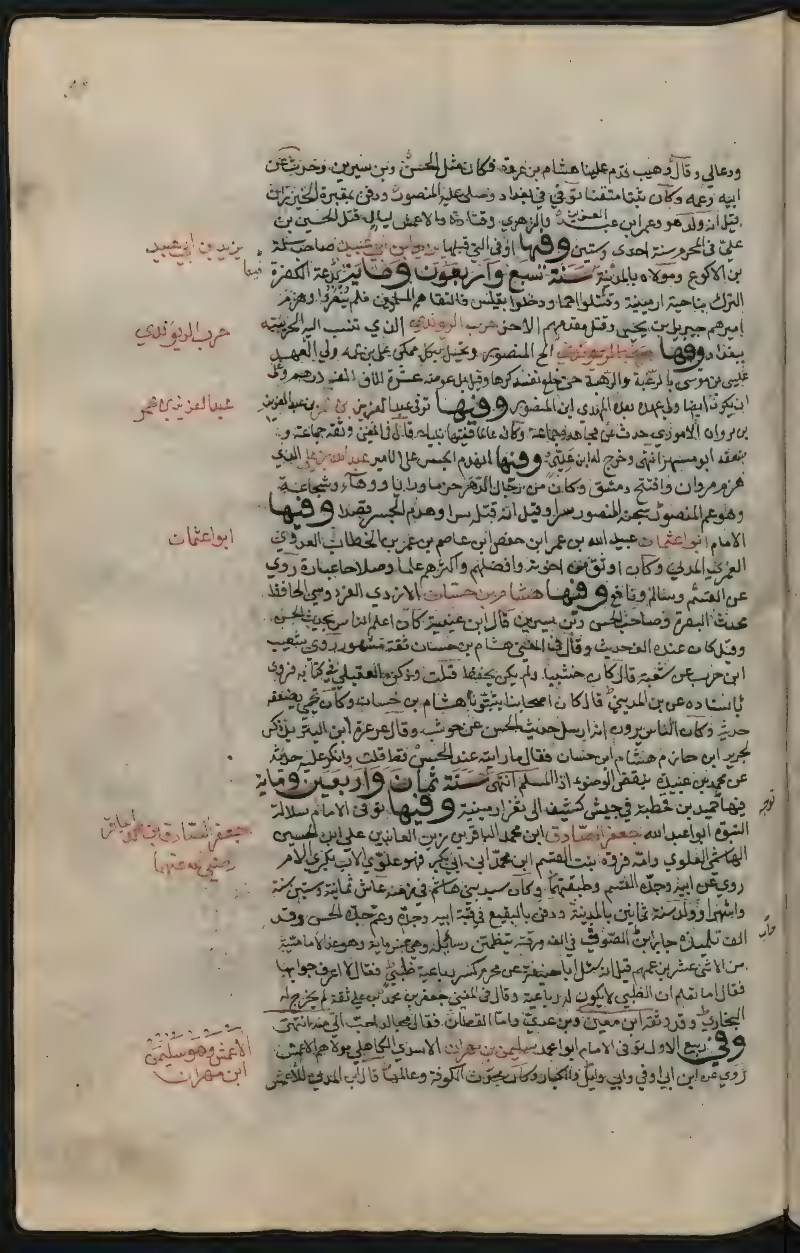 ودعالي وقال وهيب قدم علينا هشام بن عروة فكان مثل الحسن وبن سيرين وحدث عن
ابيه وعمه وكان ثبتا متقنا توفي في بغداد وصلى عليه المنصور ودفن بمقبرة الخيزران
قيل انه ولد هو وعمر ابن عبد العزيز والزهري وقتادة والاعمش ليالي قتل الحسين بن
علي في المحرم سنة احدى وستين وفيها او في التي قبلها يزيد بن ابي عبيد صاحب سلمة
بن الاكوع ومولاه بالمدينة سنة تسع واربعون وماية الكفرة
الترك بناحية ارمينية وقتلوا امما ودخلوا تفليس فالتقاهم المسلمين فلم ينصروا وهزم
اميرهم جبريل بن يحيى وقتل مقدمهم الاخر حرب الريوندي الذي تنسب اليه الحربية
ببغداد وفيها الح المنصور وتحيل بكل ممكن على بن عمه ولي العهد
عيسى بن موسى بالرغبة والرهبة حتى خلع نفسه كرها وقيل بل عوضه عشرة الاف الف درهم وعلى
ان يكون ايضا ولي عهده بعد المهدي ابن المنصور وفيها توفي عبد العزيز بن عمر بن عبد العزيز
بن مروان الاموي حدث عن مجاهد وجماعة وكان عالما فقيها نبيلا قال في المغني وثقه جماعة و
ضعفه ابو مسهر انتهى وخرج له ابن عيينة وفيها انهدم الحبس على الامير عبد الله بن علي الذي
هزم مروان وافتتح دمشق وكان من رجال الدهر حزما ورايا ودهاء وشجاعة
وهو عم المنصور سجنه المنصور سرا وقيل انه قتله سرا وهدم الحبس قصدا وفيها
الامام ابو اعثمات عبيد الله بن عمر ابن حفص ابن عاصم بن عمر بن الخطاب العدوي
العمري المدني وكان اوثق من اخوته وافضلهم واكثرهم علما وصلاحا عبادة روي
عن القسم وسالم ونافع وفيها هشام بن حسان الازدي القردوسي الحافظ
محدث البصرة وصاحب الحسن وبن سيرين قال ابن عيينة كان اعلم الناس بحديث الحسن
وقيل كان عنده الف حديث وقال في المغني هشام بن حسان ثقة مشهور روى شعيب
ابن حرب عن شعبة قال كان خشبيا ولم يكن يحفظ قلت وذكره العقيلي في كتابه فروى
باسناده عن بن المديني قال كان اصحابنا يثبتون هشام بن حسان وكان يحيى يضعفه
حديثه وكان الناس يرون انه ارسل حديث الحسن عن حوشب وقال عرعرة ابن البرند ذكر
لجرير ابن حازم هشام ابن حسان فقال ما رايته عند الحسن قط قلت وانكر عليه حديثه
عن محمد بن عبيدة ينقض الوضوء اذا المسلم انتهى سنة ثمان واربعين وماية
فيها توجه حميد بن قحطبة في جيش كثيف الى ثغر ارمينية وفيها توفي الامام سلالة
النبوه ابو عبد الله جعفر الصادق ابن محمد الباقر بن زين العابدين علي ابن الحسين
الهاشمي العلوي وامه فروة بنت القسم ابن محمد ابن ابي بكر فهو علوي الاب بكري الام
روي عن ابيه وجده القسم وطبقتهما وكان سيد بني هاشم في زمنه عاش ثمانية وستين سنة
واشهرا وولد سنة ثمانين بالمدينة ودفن بالبقيع في قبة ابيه وجده وعم جده الحسن وقد
الف تلميذه جابر ابن حيان الصوفي في الف ورقة يتضمن رسائله وهي خمس ماية وهو عند الامامية
من الاثني عشر بزعمهم قيل انه سئل ابا حنيفة عن محرم كسر رباعية ظبي فقال لا اعرف جوابها
فقال اما تعلم ان الظبي لا يكون له رباعية وقال في المغني جعفر بن محمد بن علي ثقة لم يخرج له
البخاري وقد وثقه ابن معين وبن عدي واما القطان فقال مجالد احب الي منه انتهى
وفي ربيع الاول توفي الامام ابو محمد سليمن بن مهران الاسدي الكاهلي مولاهم الاعمش
روي عن ابن ابي اوفى وابي وايل والكبار وكان محدث الكوفة وعالمها قال ابن المديني للاعمش
يزيد بن ابي عبيد
حرب الريوندي
عبد العزيز بن عمر
ابو اعثمات
جعفر الصادق بن محمد الباقر
رضي الله عنهما
الاعمش وهو سليمن
ابن مهران